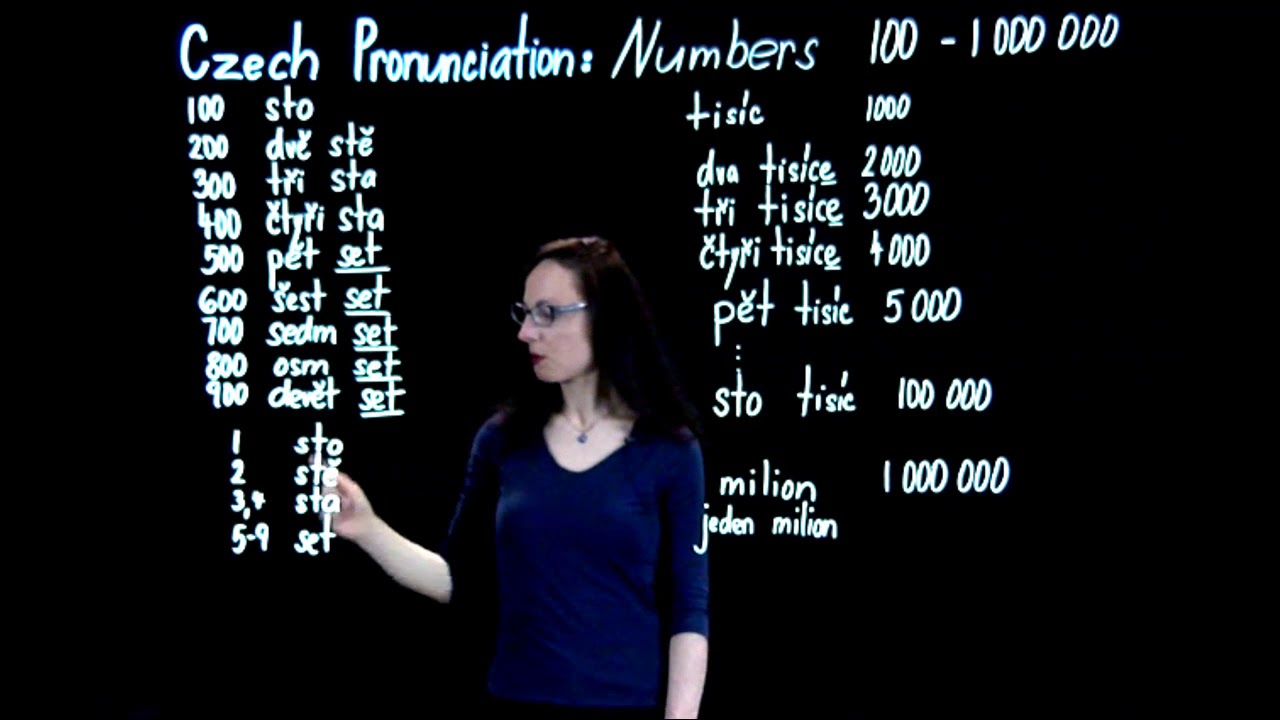 Czech Pronunciation: Numbers 100 - 1 000 000
100 sto
200 dvě stě
300 tři sta
400 čtyři sta
500 pět set
600 šest set
700 sedm set
800 osm set
900 devět set
1 sto
2 stě
3,4 sta
5-9 set
tisíc 1000
dva tisíce 2 000
tři tisíce 3000
čtyři tisíce 4 000
pět tisíc 5 000
⋮
sto tisíc 100 000
milion 1 000 000
jeden milion